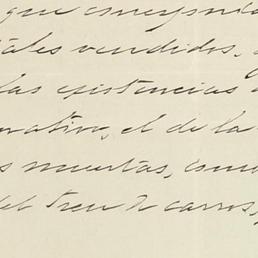 que corresponda
tales vendidos,
las existencias
rativo, el de la
s muertas, como
del tren de carros,